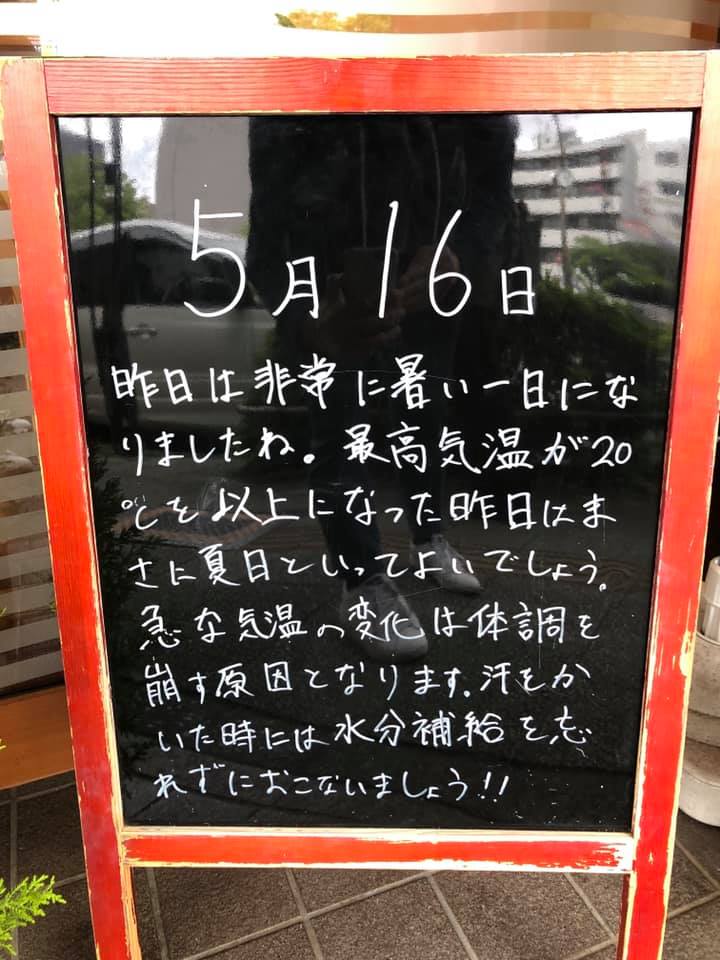 5月16日
昨日は非常に暑い一日にな
りましたね。最高気温が20
℃を以上になった昨日はま
さに夏日といってよいでしょう。
急な気温の変化は体調を
崩す原因となります。汗をか
いた時には水分補給を忘
れずにおこないましょう!!